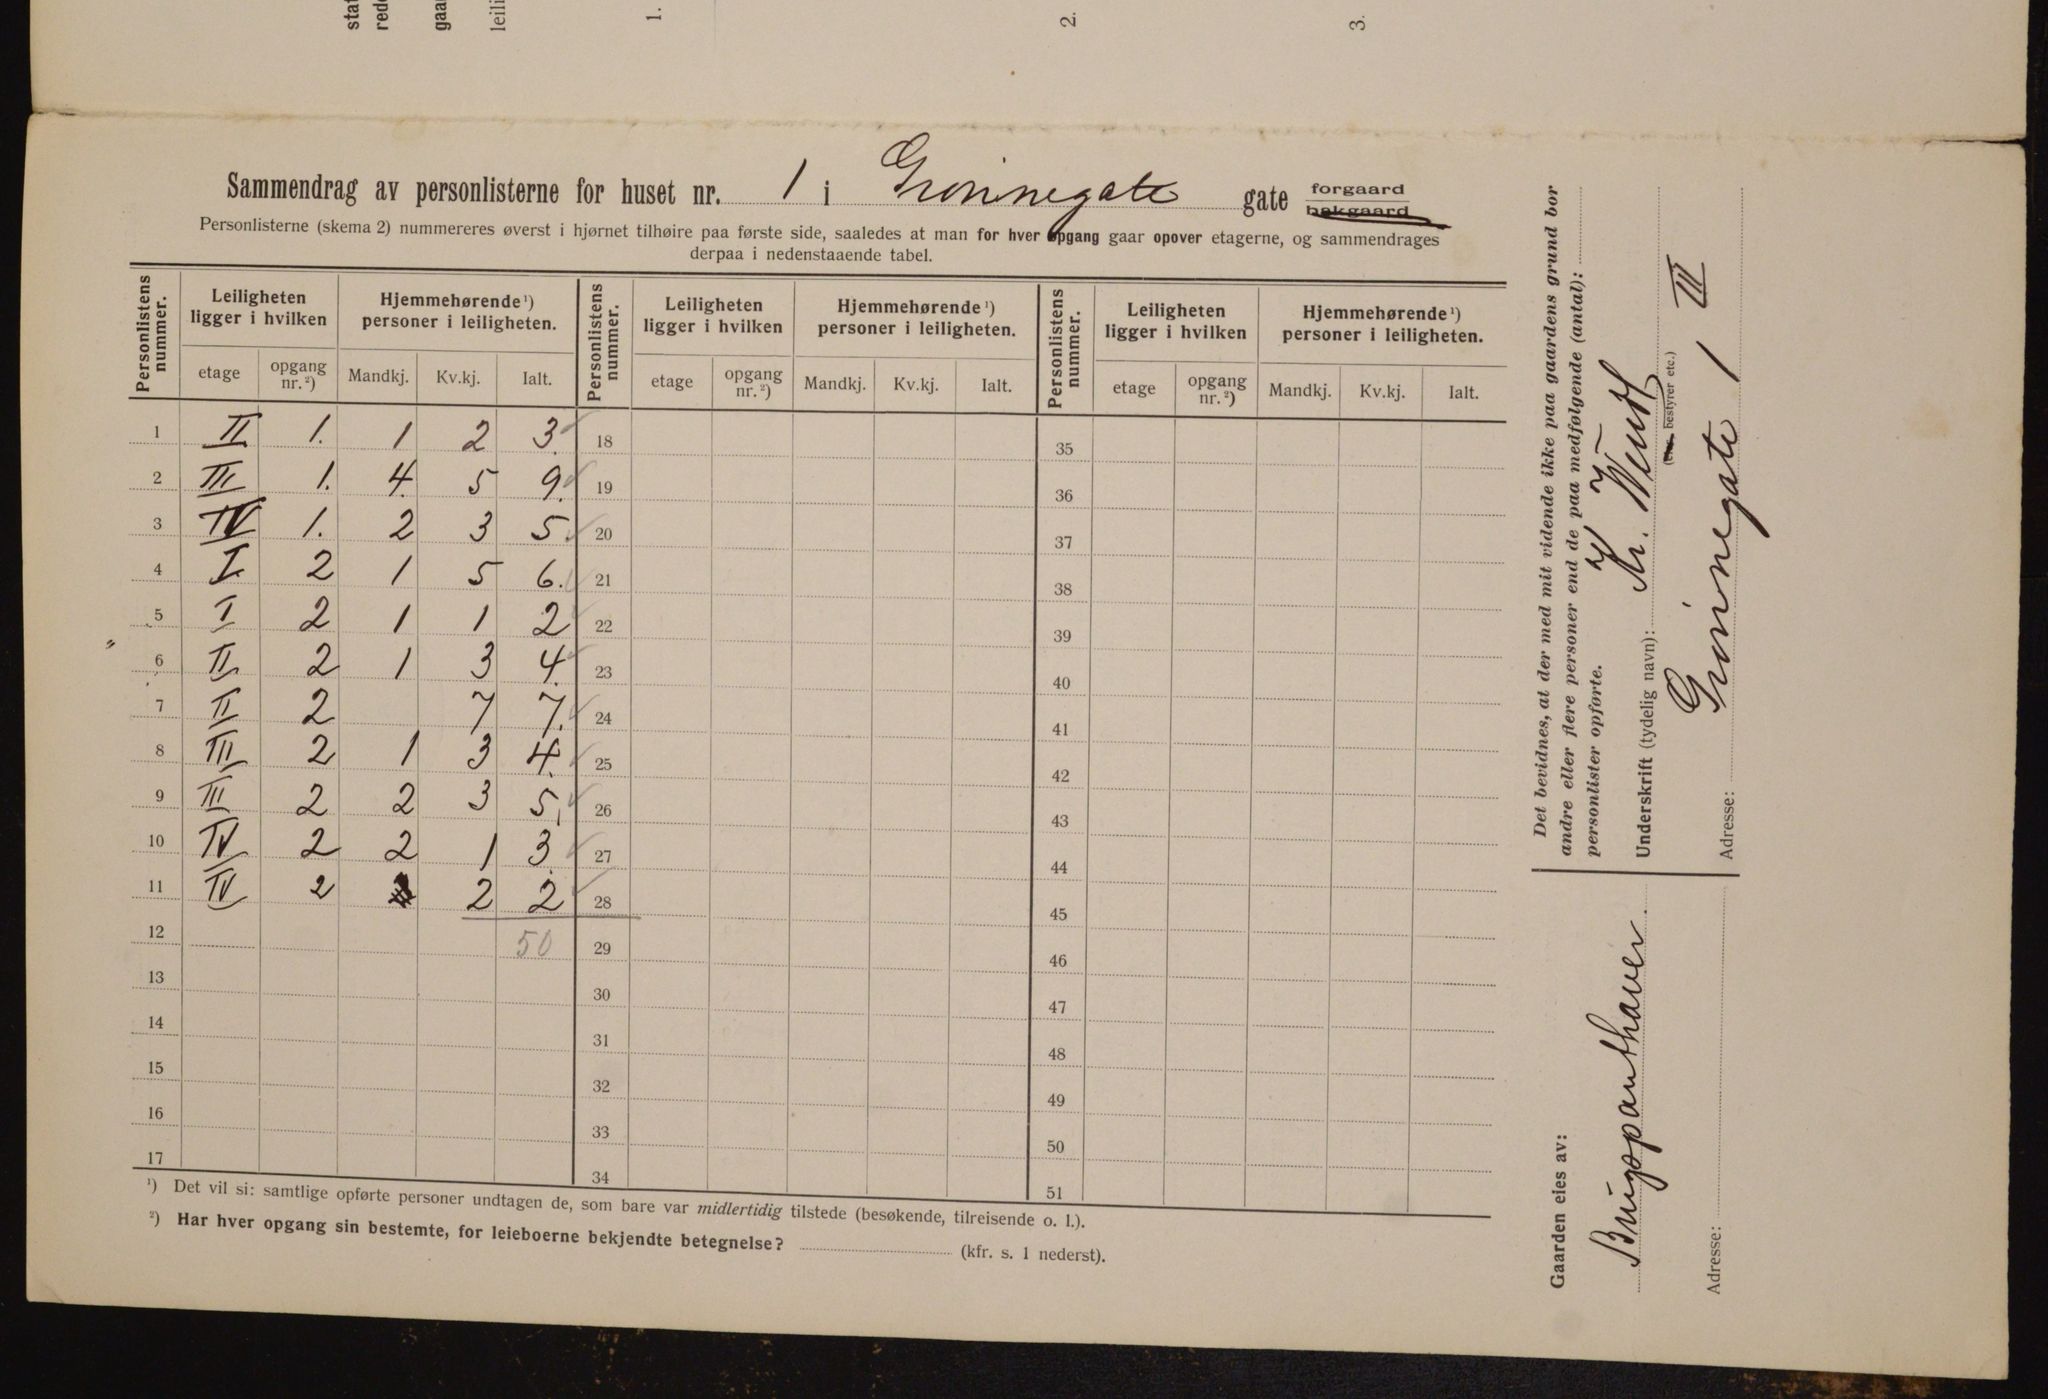 1.
2.
3.
Sammendrag av personlisterne for huset nr. 1 i Grønnegate gate forgaard
bakgaard
Personlisterne (skema 2) nummereres øverst i hjørnet tilhøire paa første side, saaledes at man for hver opgang gaar opover etagerne, og sammendrages
derpaa i nedenstaaende tabel.
Personlistens nummer. Leiligheten ligger i hvilken Hjemmehørende¹) personer i leiligheten. Personlistens nummer. Leiligheten ligger i hvilken Hjemmehørende¹) personer i leiligheten. Personlistens nummer. Leiligheten ligger i hvilken Hjemmehørende¹) personer i leiligheten.
etage opgang nr.²) Mandkj. Kv.kj. Ialt. etage opgang nr.²) Mandkj. Kv.kj. Ialt. etage opgang nr.²) Mandkj. Kv.kj. Ialt.
1 II 1. 1 2 3. 18 35
2 III 1. 4. 5 9. 19 36
3 IV 1. 2 3 5. 20 37
4 I 2 1 5 6. 21 38
5 I 2 1 1 2 22 39
6 II 2 1 3 4. 23 40
7 II 2 7 7. 24 41
8 III 2 1 3 4. 25 42
9 III 2 2 3 5. 26 43
10 IV 2 2 1 3. 27 44
11 IV 2 2 2 28 45
12 50 29 46
13 30 47
14 31 48
15 32 49
16 33 50
17 34 51
¹) Det vil si: samtlige opførte personer undtagen de, som bare var midlertidig tilstede (besøkende, tilreisende o. l.).
²) Har hver opgang sin bestemte, for leieboerne bekjendte betegnelse? (kfr. s. 1 nederst).
Det bevidnes, at der med mit vidende ikke paa gaardens grund bor
andre eller flere personer end de paa medfølgende (antal):
personlister opførte.
Underskrift (tydelig navn):
bestyrer etc.)
Adresse: Grønnegate 1 III
Gaarden eies av:
Adresse: